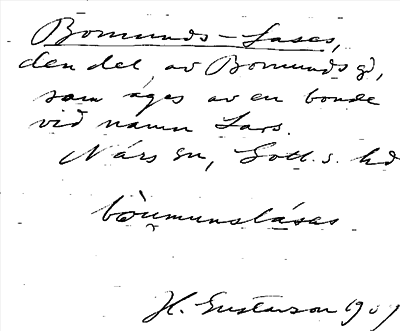 Bomunds-Lases,
den del av Bomunds gd,
som äges av en bonde
vid namn Lars.
Närs sn, Gotl. s. hd
bo̊u̯munslásas
H. Gustavson 1909